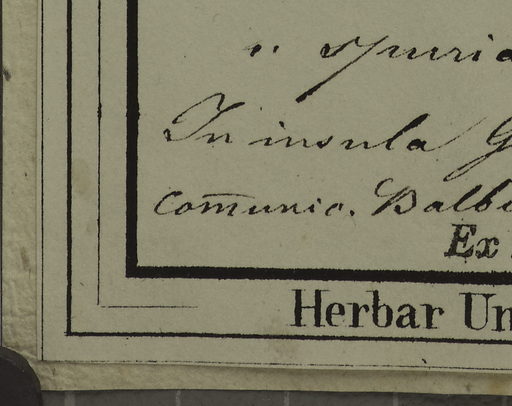 „ spuria
In insula G
com̅unic. Balbi
Ex
Herbar Un